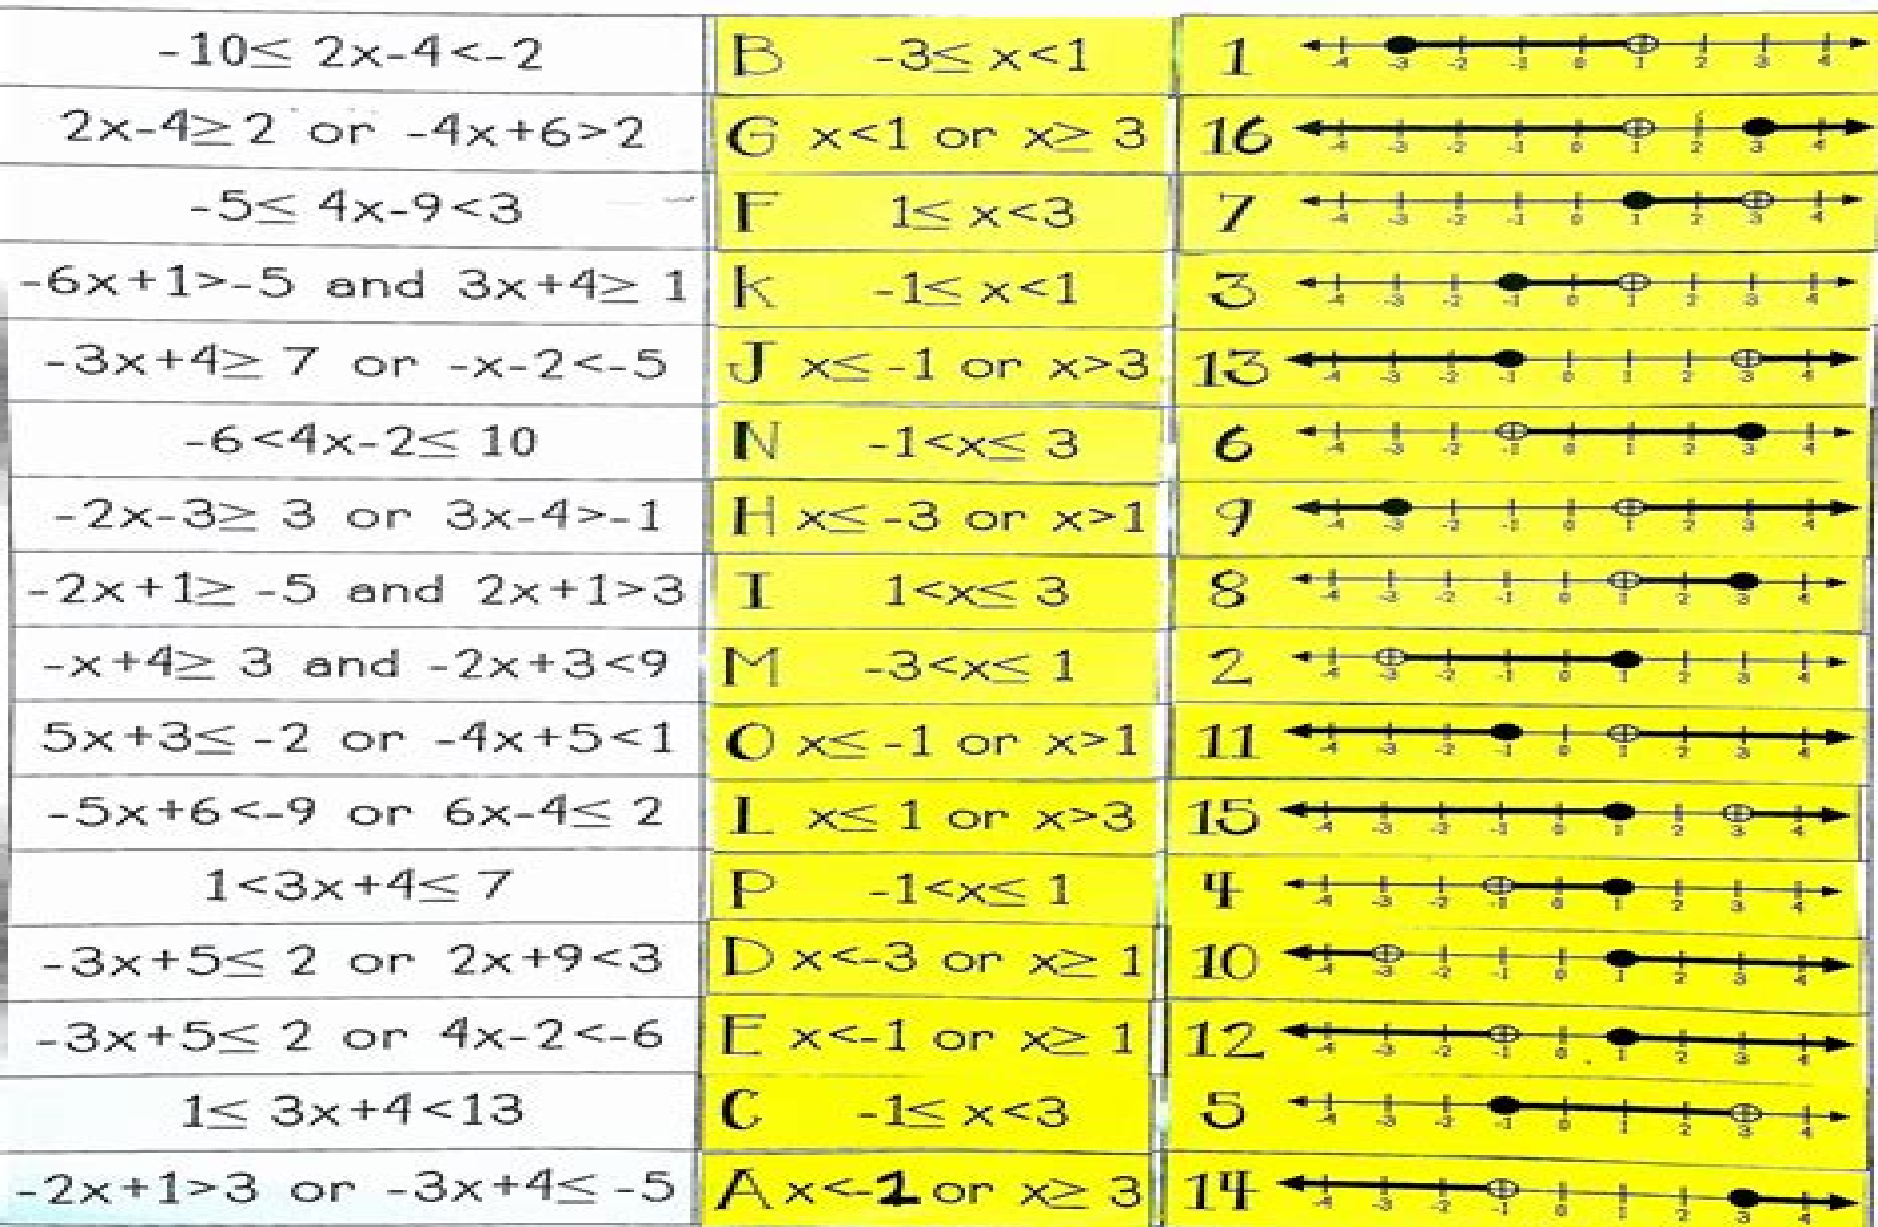 -10≤ 2x-4<-2 B -3≤ x<1 1 -4 -3 -2 -1 0 1 2 3 4
2x-4≥ 2 or -4x+6>2 G x<1 or x≥ 3 16 -4 -3 -2 -1 0 1 2 3 4
-5≤ 4x-9<3 F 1≤ x<3 7 -4 -3 -2 -1 0 1 2 3 4
-6x+1>-5 and 3x+4≥ 1 K -1≤ x<1 3 -4 -3 -2 -1 0 1 2 3 4
-3x+4≥ 7 or -x-2<-5 J x≤ -1 or x>3 13 -4 -3 -2 -1 0 1 2 3 4
-6<4x-2≤ 10 N -1<x≤ 3 6 -4 -3 -2 -1 0 1 2 3 4
-2x-3≥ 3 or 3x-4>-1 H x≤ -3 or x>1 9 -4 -3 -2 -1 0 1 2 3 4
-2x+1≥ -5 and 2x+1>3 I 1<x≤ 3 8 -4 -3 -2 -1 0 1 2 3 4
-x+4≥ 3 and -2x+3<9 M -3<x≤ 1 2 -4 -3 -2 -1 0 1 2 3 4
5x+3≤ -2 or -4x+5<1 O x≤ -1 or x>1 11 -4 -3 -2 -1 0 1 2 3 4
-5x+6<-9 or 6x-4≤ 2 L x≤ 1 or x>3 15 -4 -3 -2 -1 0 1 2 3 4
1<3x+4≤ 7 P -1<x≤ 1 4 -4 -3 -2 -1 0 1 2 3 4
-3x+5≤ 2 or 2x+9<3 D x<-3 or x≥ 1 10 -4 -3 -2 -1 0 1 2 3 4
-3x+5≤ 2 or 4x-2<-6 E x<-1 or x≥ 1 12 -4 -3 -2 -1 0 1 2 3 4
1≤ 3x+4<13 C -1≤ x<3 5 -4 -3 -2 -1 0 1 2 3 4
-2x+1>3 or -3x+4≤ -5 A x<-1 or x≥ 3 14 -4 -3 -2 -1 0 1 2 3